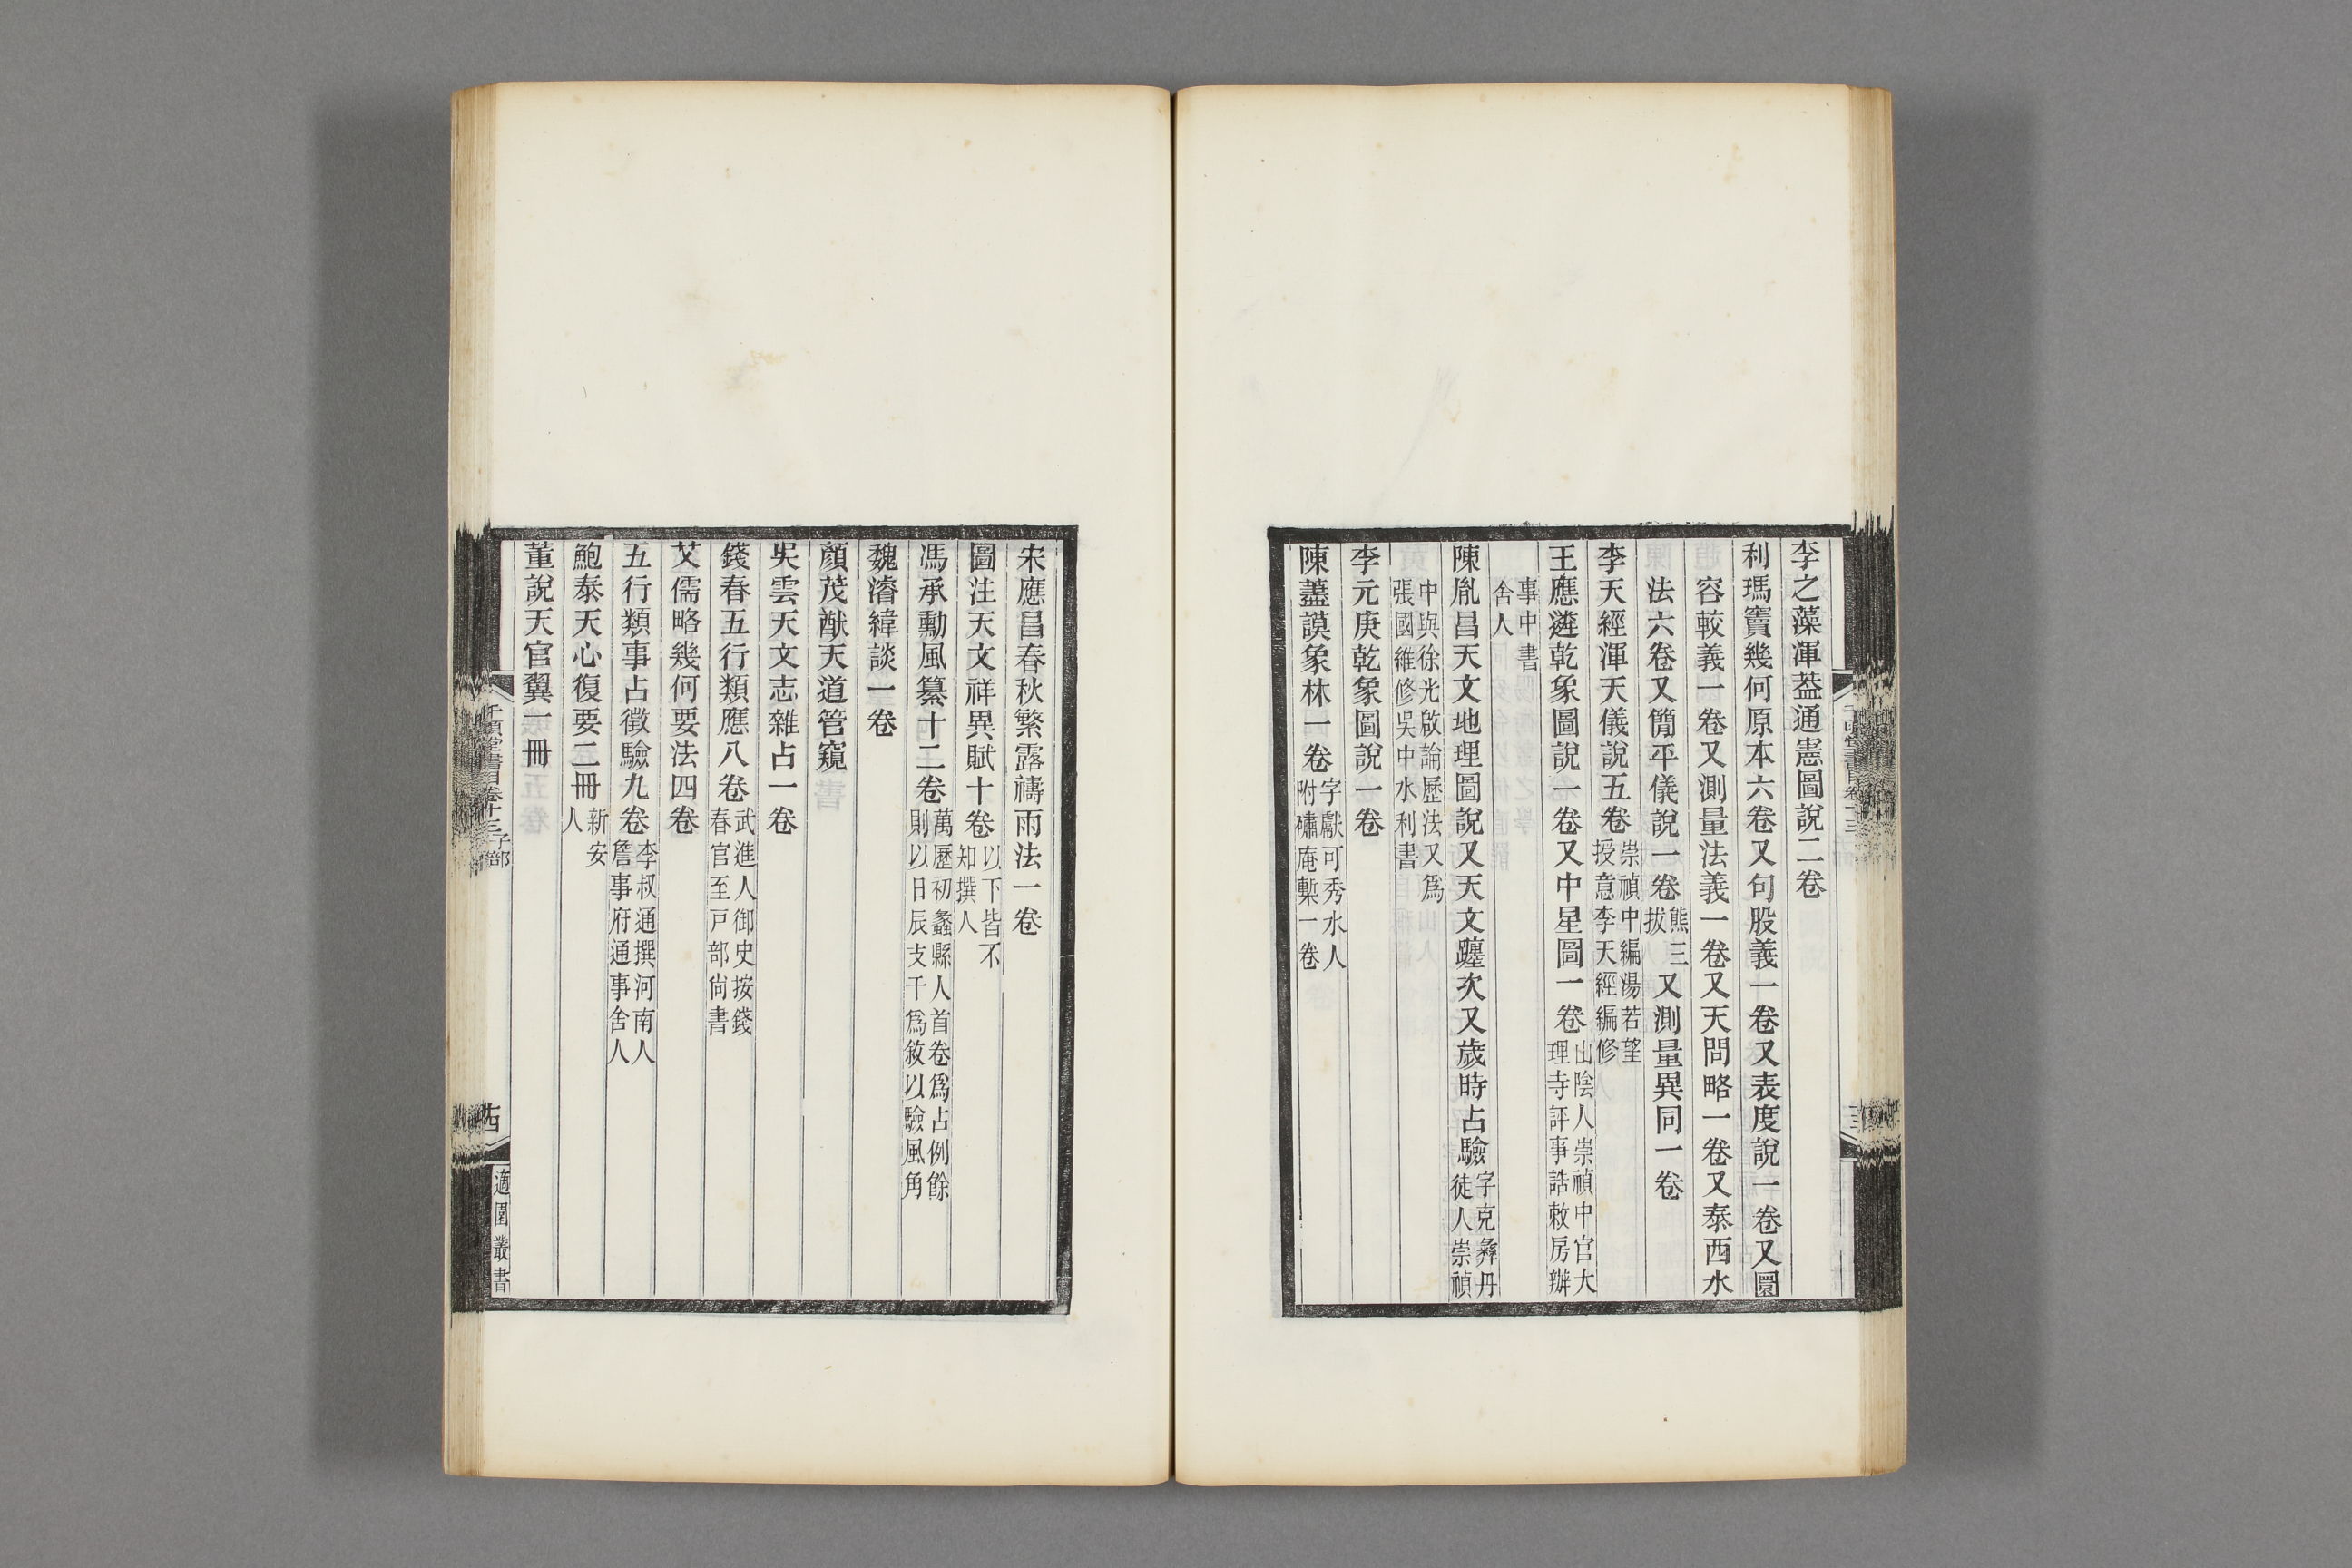 李之藻渾葢通憲圖說二卷
利瑪竇幾何原本六卷又句股義一卷又表度說一卷又圜
容較義一卷又測量法義一卷又天問略一卷又泰西水
法六卷又簡平儀說一卷熊三拔又測量異同一卷
李天經渾天儀說五卷崇禎中編湯若望授意李天經編修
王應遴乾象圖說一卷又中星圖一卷山陰人崇禎中官大理寺評事誥敕房辦
事中書舍人
陳胤昌天文地理圖說又天文躔次又歲時占驗字克彝丹徒人崇禎
中與徐光啟論歷法又爲張國維修吳中水利書
李元庚乾象圖說一卷
陳藎謨象林一卷字獻可秀水人附礴庵槧一卷
宋應昌春秋繁露禱雨法一卷
圖注天文祥異賦十卷以下皆不知撰人
馮承勳風纂十二卷萬歷初蠡縣人首卷爲占例餘則以日辰支干爲敘以驗風角
魏濬緯談一卷
顏茂猷天道管窺
吳雲天文志雜占一卷
錢春五行類應八卷武進人御史按錢春官至戸部尙書
艾儒略幾何要法四卷
五行類事占徵驗九卷李叔通撰河南人詹事府通事舍人
鮑泰天心復要二冊新安人
董說天官翼一冊
千頃堂書目卷十三子部
古
適園叢書